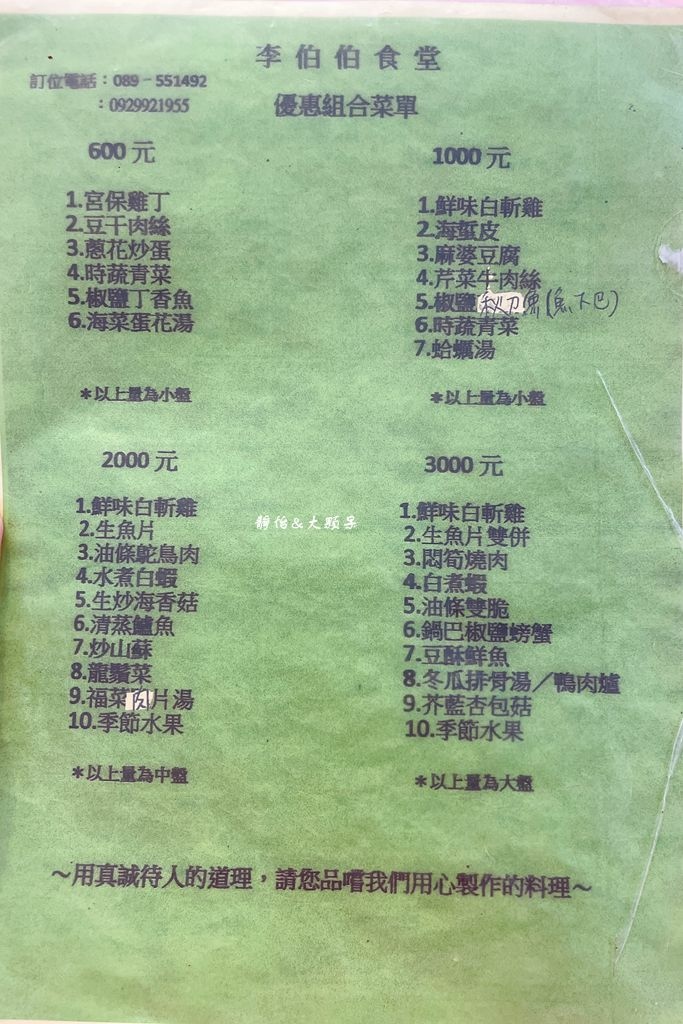 李伯伯食堂
訂位電話：089－551492
：0929921955
優惠組合菜單
600 元
1.宮保雞丁
2.豆干肉絲
3.蔥花炒蛋
4.時蔬青菜
5.椒鹽丁香魚
6.海菜蛋花湯
＊以上量為小盤
1000 元
1.鮮味白斬雞
2.海蜇皮
3.麻婆豆腐
4.芹菜牛肉絲
5.椒鹽秋刀魚(魚下巴)
6.時蔬青菜
7.蛤蠣湯
＊以上量為小盤
2000 元
1.鮮味白斬雞
2.生魚片
3.油條鴕鳥肉
4.水煮白蝦
5.生炒海香菇
6.清蒸鱸魚
7.炒山蘇
8.龍鬚菜
9.福菜肉片湯
10.季節水果
＊以上量為中盤
3000 元
1.鮮味白斬雞
2.生魚片雙併
3.悶筍燒肉
4.白煮蝦
5.油條雙脆
6.鍋巴椒鹽螃蟹
7.豆酥鮮魚
8.冬瓜排骨湯／鴨肉爐
9.芥藍杏包菇
10.季節水果
＊以上量為大盤
靜怡&大顆呆
～用真誠待人的道理，請您品嚐我們用心製作的料理～